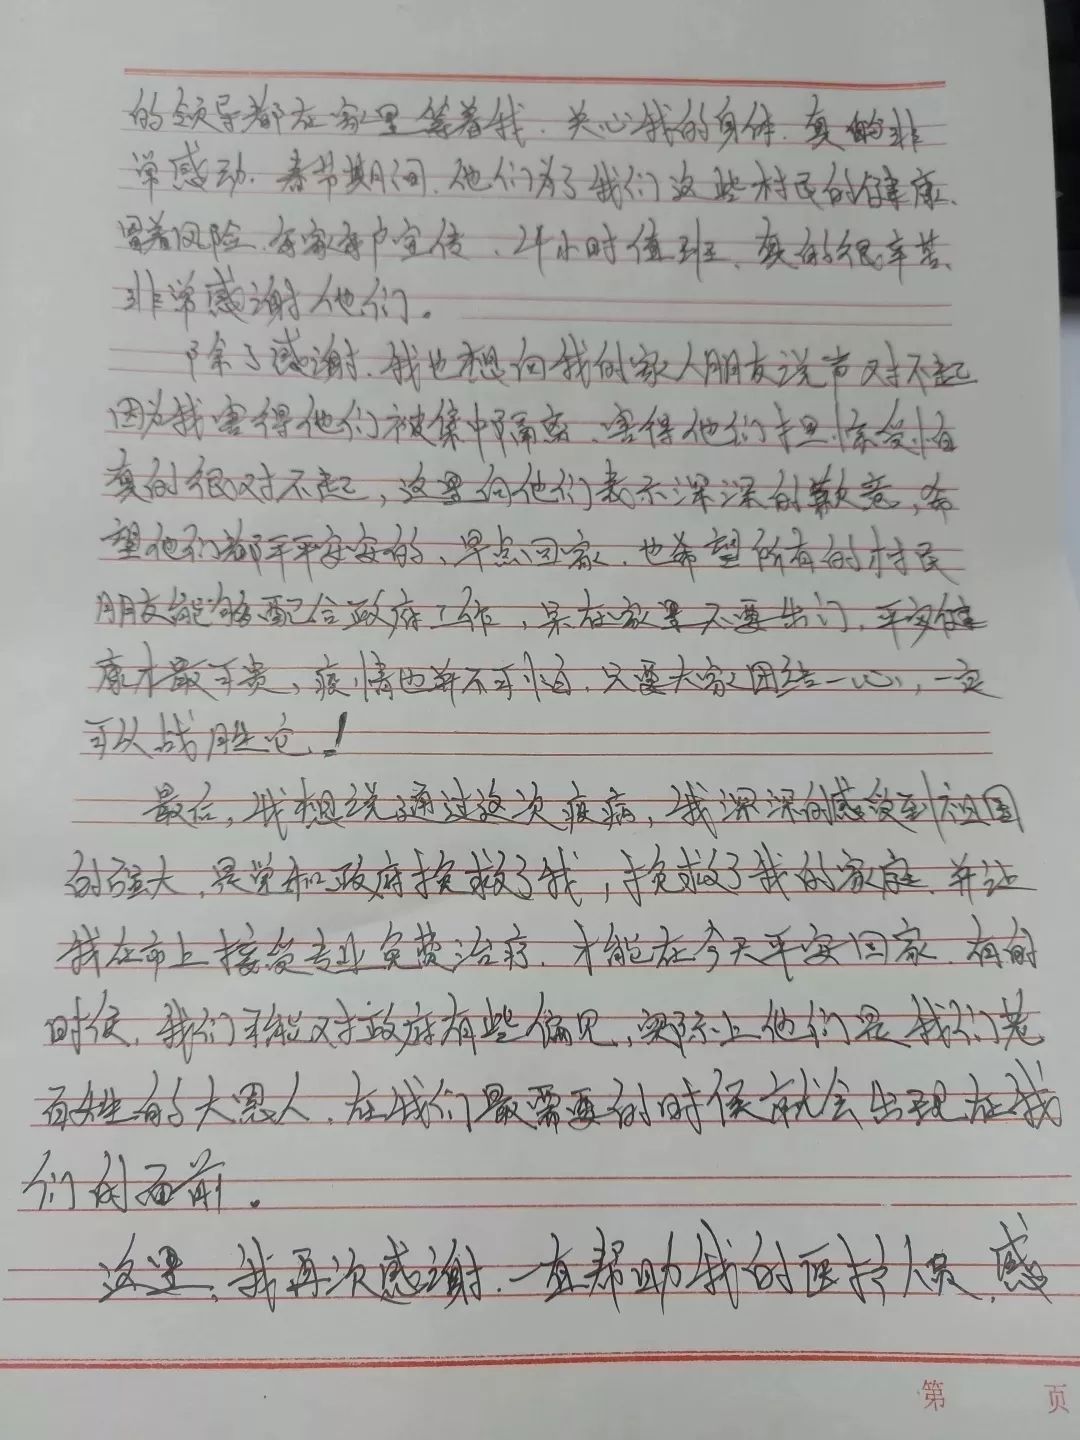 的领导都在家里等着我、关心我的身体、真的非
常感动、春节期间、他们为了我们这些村民的健康、
冒着风险、每家每户宣传、24小时值班、真的很辛苦、
非常感谢他们。
除了感谢、我也想向我的家人朋友说声对不起
因为我害得他们被集中隔离、害得他们担惊受怕
真的很对不起，这里向他们表示深深的歉意，希
望他们都平平安安的、早点回家、也希望所有的村民
朋友能够配合政府工作，呆在家里不要出门、平安健
康才最可贵，疫情也并不可怕、只要大家团结一心，一定
可以战胜它！
最后，我想说通过这次疫病，我深深的感受到祖国
的强大、是党和政府挽救了我，挽救了我的家庭、并让
我在市上接受专业免费治疗、才能在今天平安回家、有的
时候、我们可能对政府有些偏见，实际上他们是我们老
百姓的大恩人、在我们最需要的时候就会出现在我
们的面前。
这里，我再次感谢、一直帮助我的医护人员、感
第 页